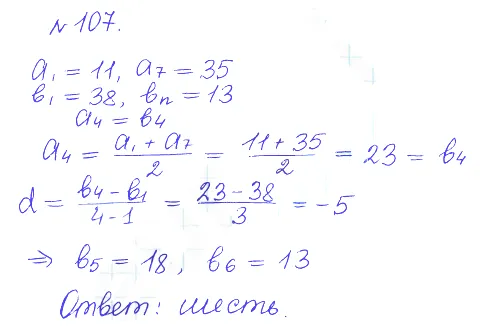 №107.
a₁ = 11, a₇ = 35
b₁ = 38, bₙ = 13
a₄ = b₄
a₄ = (a₁ + a₇)/2 = (11 + 35)/2 = 23 = b₄
d = (b₄ − b₁)/(4 − 1) = (23 − 38)/3 = −5
⇒ b₅ = 18, b₆ = 13
Ответ: шесть.